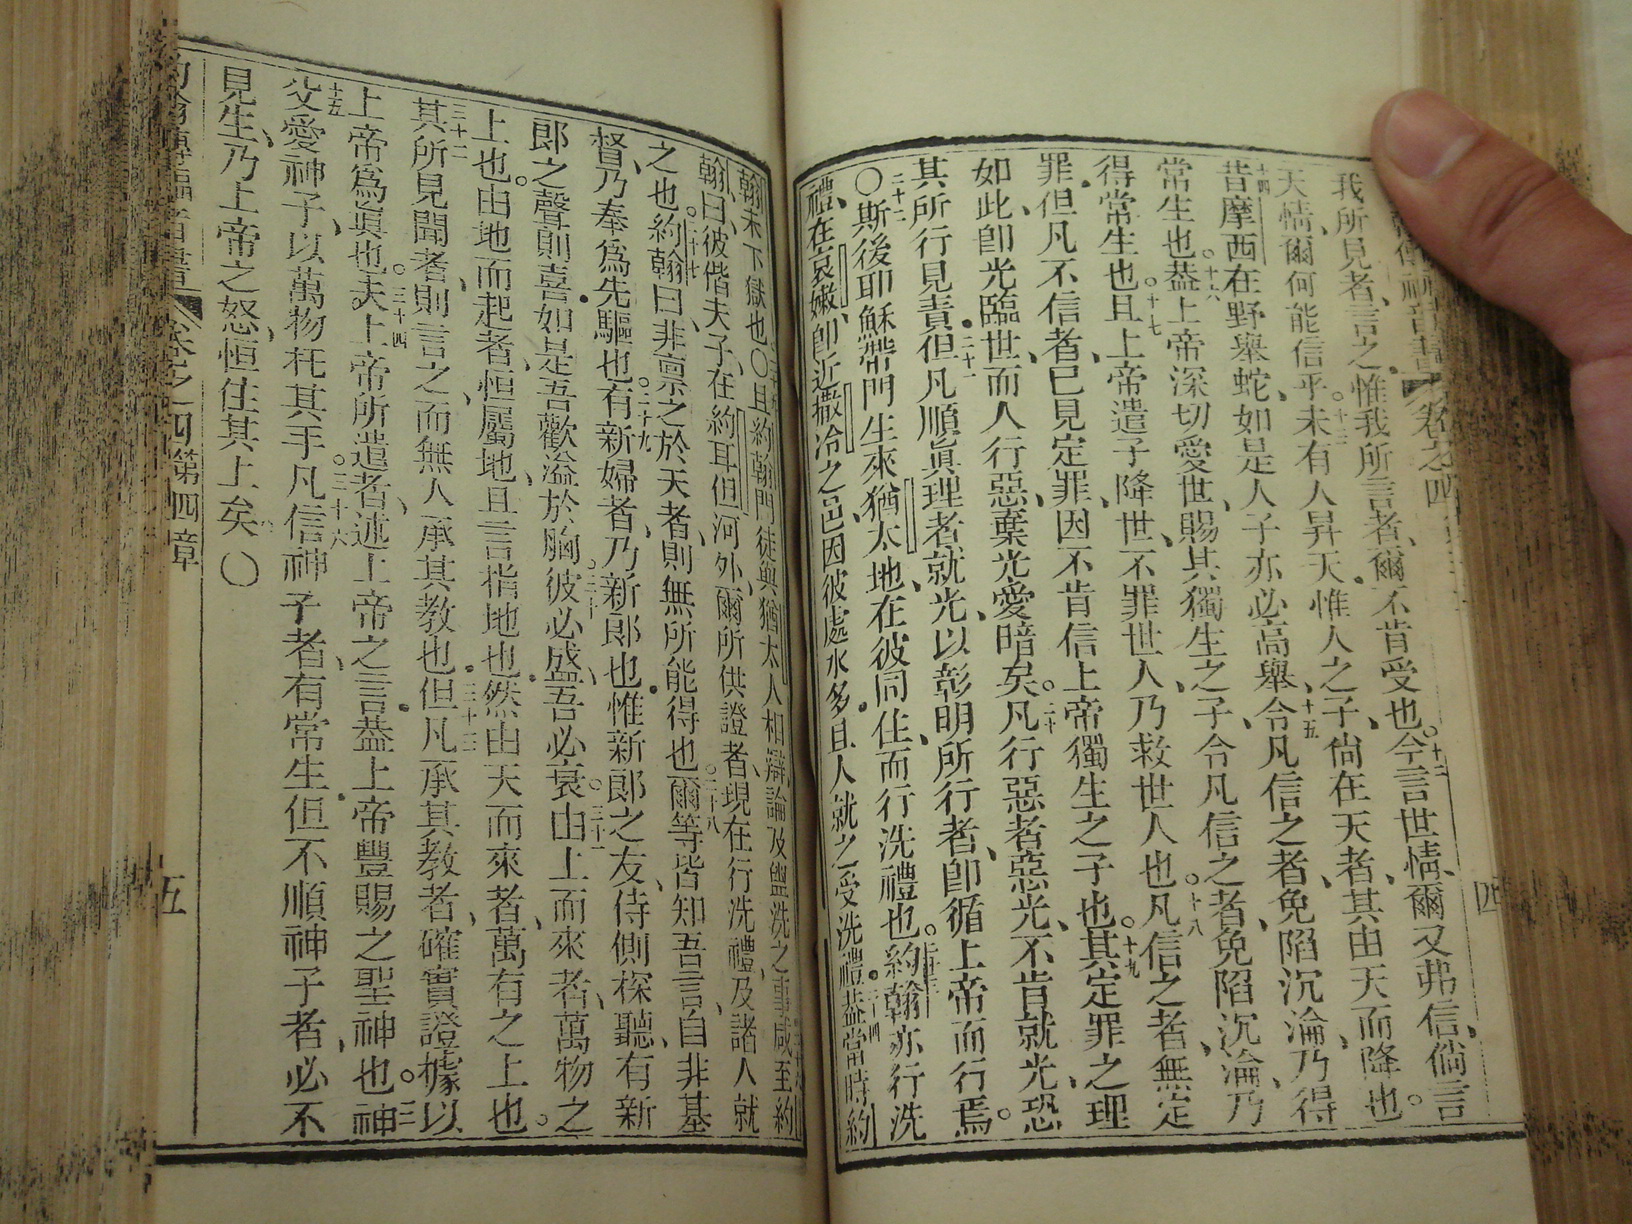 卷之四
四
我所見者、言之、惟我所言者、爾不肯受也。十二今言世情、爾又弗信、倘言
天情、爾何能信乎、十三未有人昇天、惟人之子、尙在天者、其由天而降也。
十四昔摩西在野舉蛇、如是人子亦必高舉、十五令凡信之者、免陷沉淪、乃得
常生也。十六葢上帝深切愛世、賜其獨生之子、令凡信之者、免陷沉淪、乃
得常生也。十七且上帝遣子降世、不罪世人、乃救世人也。十八凡信之者、無定
罪、但凡不信者、已見定罪、因不肯信上帝獨生之子也。十九其定罪之理
如此、卽光臨世、而人行惡、棄光愛暗矣。二十凡行惡者惡光、不肯就光、恐
其所行見責、二十一但凡順眞理者就光、以彰明所行者、卽循上帝而行焉。
〇二十二斯後耶穌偕門生來猶太地、在彼同住、而行洗禮也。二十三約翰亦行洗
禮、在哀嫩、卽近撒冷之邑、因彼處水多、且人就之受洗禮。二十四葢當時約
翰未下獄也〇二十五且約翰門徒與猶太人相辯論及盥洗之事、二十六咸至約
翰、曰、彼偕夫子、在約耳但河外、爾所供證者、現在行洗禮、及諸人就
之也。二十七約翰曰、非禀之於天者、則無所能得也。二十八爾等皆知吾言、自非基
督、乃奉爲先驅也。二十九有新婦者、乃新郎也、惟新郎之友、侍側探聽、有新
郎之聲則喜、如是吾歡溢於胸、三十彼必盛、吾必衰、三十一由上而來者、萬物之
上也。由地而起者、恒屬地、且言指地也、然由天而來者、萬有之上也。
三十二其所見聞者、則言之、而無人承其教也、三十三但凡承其教者、確實證據、以
上帝爲眞也。三十四夫上帝所遣者、述上帝之言、葢上帝豐賜之聖神也。
三十五父愛神子、以萬物托其手、三十六凡信神子者、有常生、但不順神子者、必不
見生、乃上帝之怒、恒住其上矣〇
卷之四 第四章
五